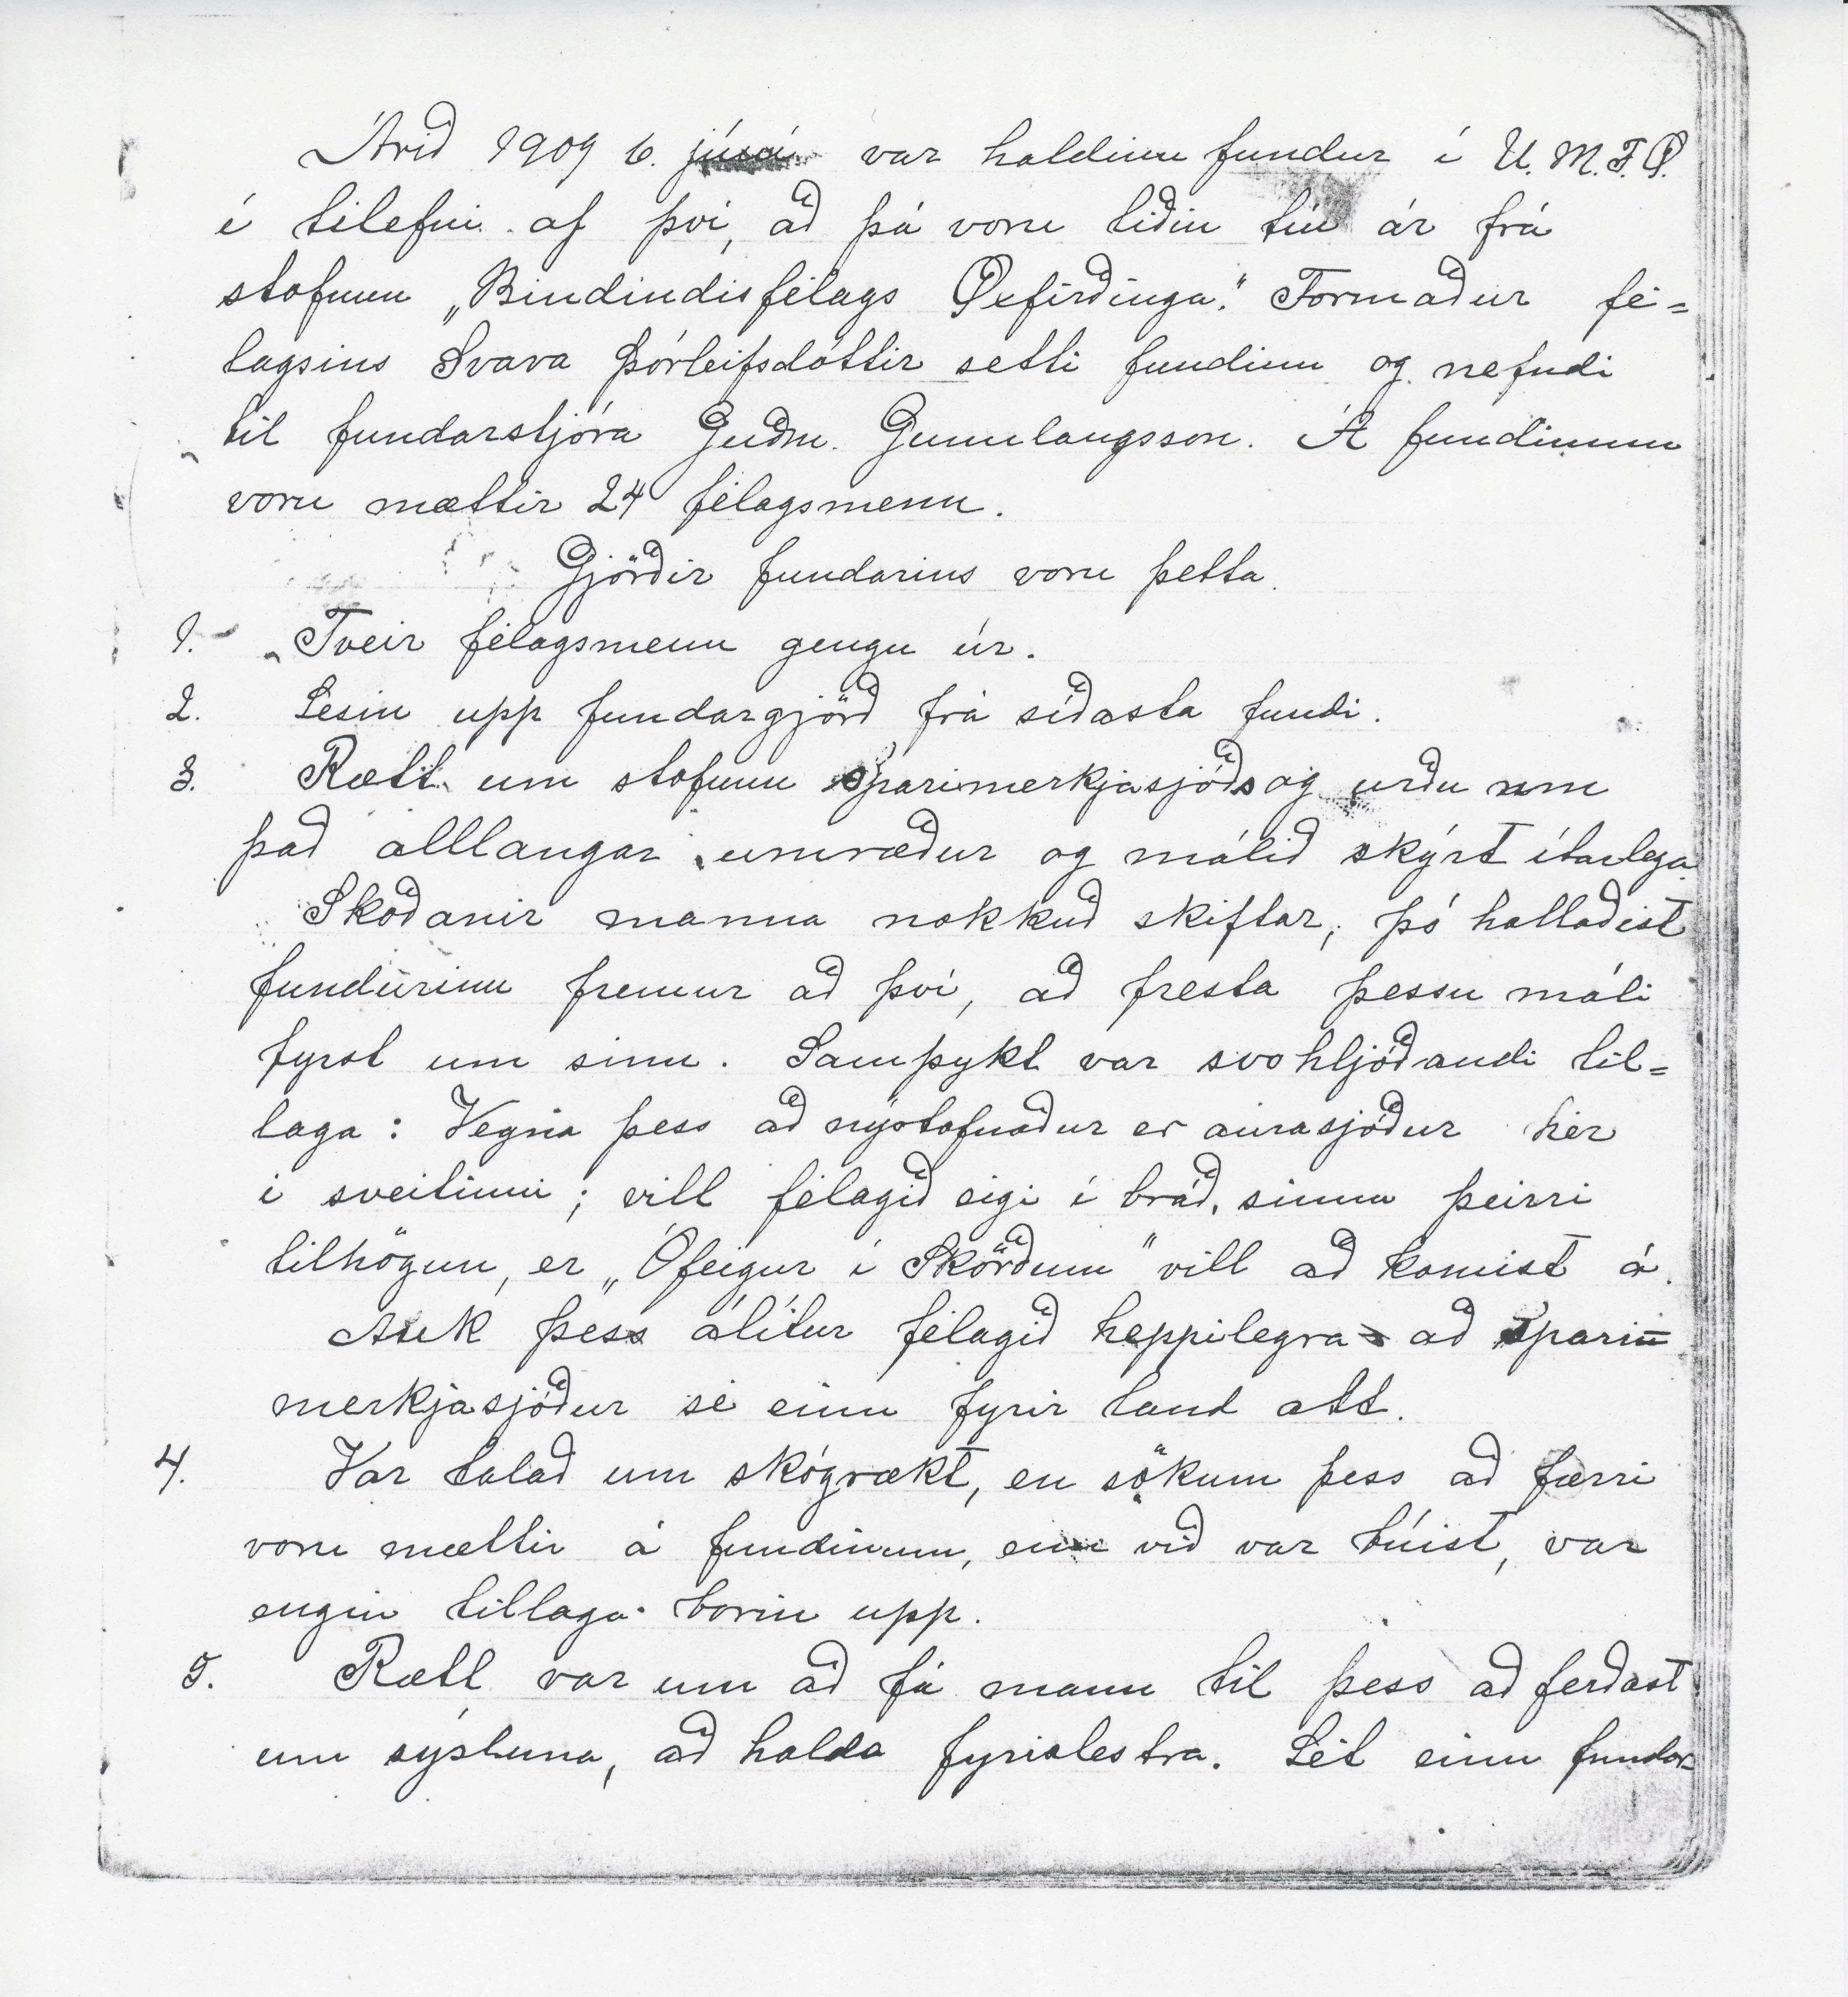 Árið 1909 6. júní var haldinn fundur í U.M.F.Ö.
í tilefni af því, að þá voru liðin tíu ár frá
stofnun „Bindindisfélags Öxfirðinga." Formaður fé=
lagsins Svava Þórleifsdóttir setti fundinn og nefndi
til fundarstjóra Guðm. Gunnlaugsson. Á fundinum
voru mættir 24 félagsmenn.
Gjörðir fundarins voru þetta.
1. Tveir félagsmenn gengu úr.
2. Lesin upp fundargjörð frá síðasta fundi.
3. Rætt um stofnun sparimerkjasjóðs og urðu um
það alllangar umræður og málið skýrt ítarlega
Skoðanir manna nokkuð skiftar, þó hallaðist
fundurinn fremur að því, að fresta þessu máli
fyrst um sinn. Samþykt var svohljóðandi til=
laga: Vegna þess að nýstofnaður er aurasjóður hér
í sveitinni; vill félagið eigi í bráð, sinna þeirri
tilhögun, er „Ófeigur í Skörðum" vill að komist á.
Auk þess álítur félagið heppilegra að spari=
merkjasjóður sé einn fyrir land alt.
4. Var talað um skógrækt, en sökum þess að færri
voru mættir á fundinum, en við var búist, var
engin tillaga borin upp.
5. Rætt var um að fá mann til þess að ferðast
um sýsluna, að halda fyrirlestra. Lét einn fundar=